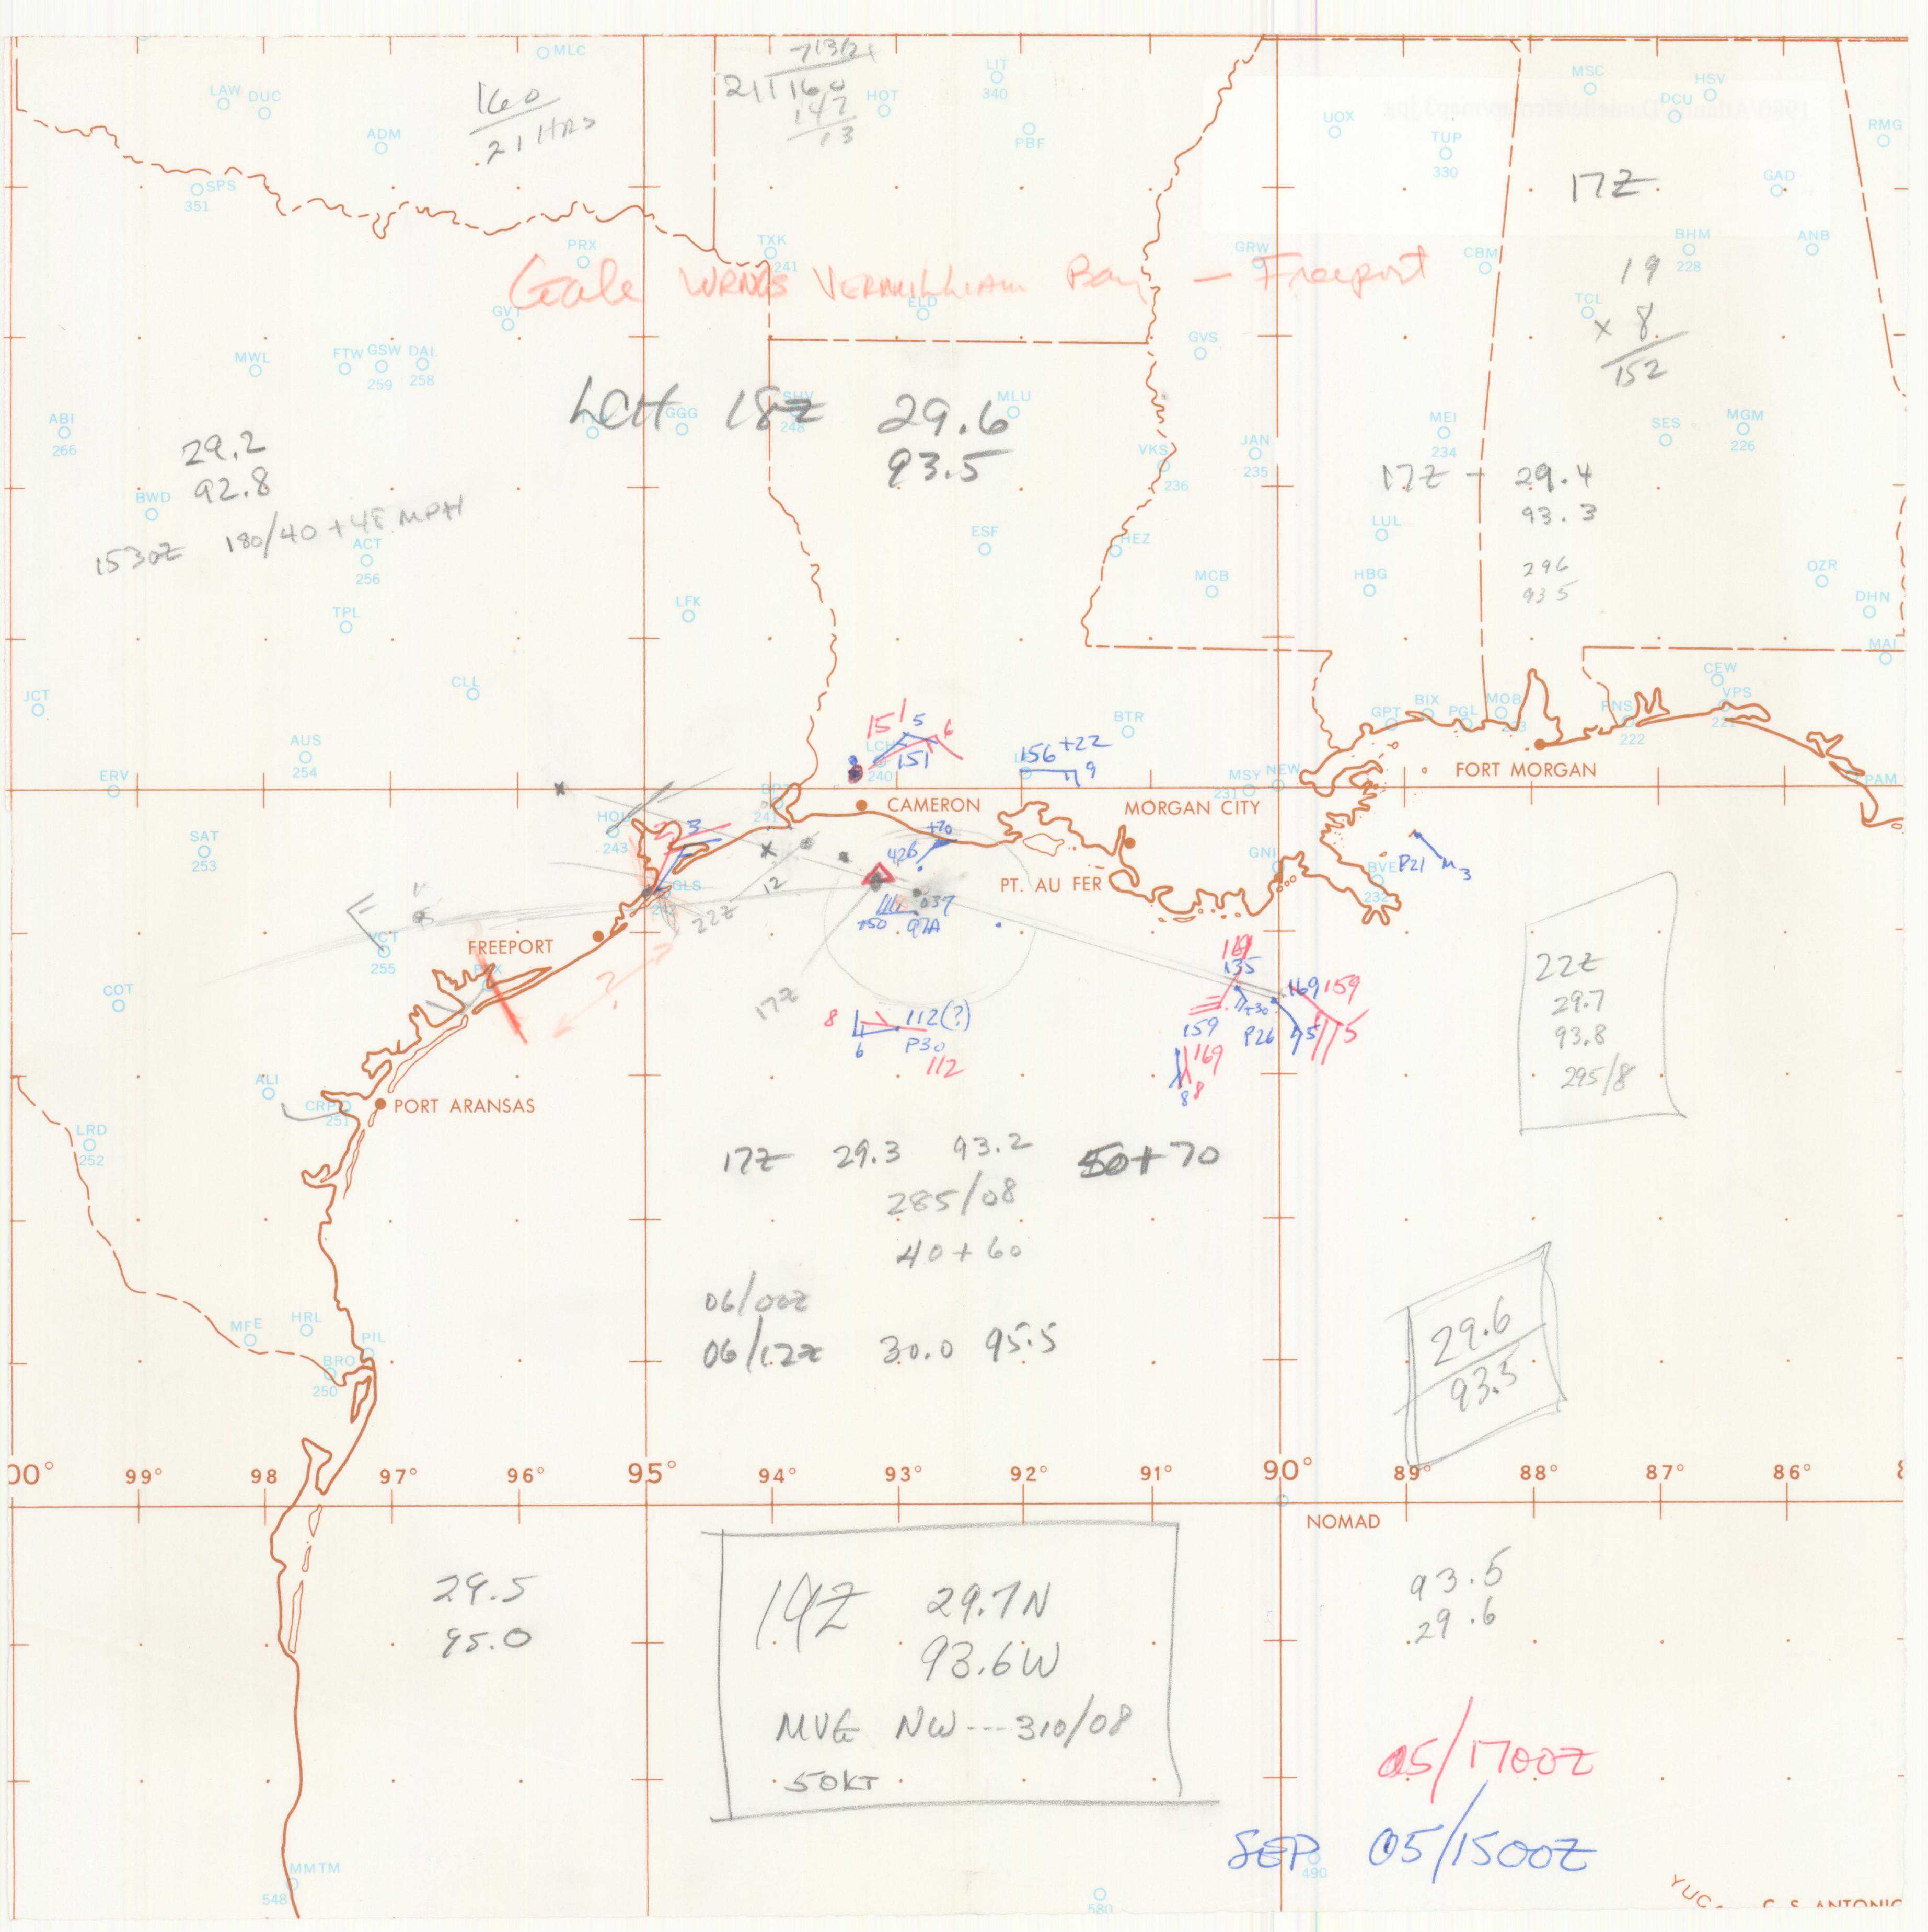 MLC
7 13/21
21 160
147
13
160
21 HRS
LIT
340
HOT
PBF
LAW DUC
ADM
SPS
351
MSC
HSV
DCU
UOX
TUP
330
RMG
17Z
GAD
PRX
TXK
241
GRW
CBM
BHM
228
ANB
Gale WRNGS VERMILLIAM Bay - Freeport
19
x 8
152
TCL
ELD
GVT
GVS
MWL
FTW GSW DAL
259 258
LCH 18Z 29.6
93.5
SHV
248
GGG
MLU
ABI
266
29.2
92.8
BWD
1530Z 180/40 + 48 MPH
ACT
256
VKS
236
JAN
235
MEI
234
SES
MGM
226
17Z - 29.4
93.3
296
935
LUL
HBG
ESF
HEZ
MCB
OZR
DHN
MAI
TPL
LFK
CLL
JCT
AUS
254
ERV
CEW
VPS
BIX
PGL
MOB
GPT
PNS
222
PAM
BTR
15 5 6
LCH
240
151
156 +22
9
MSY NEW
231
FORT MORGAN
CAMERON
MORGAN CITY
241
HOU
243
3
+70
42B
SAT
253
GLS
12
22Z
037
+50 97A
PT. AU FER
GNI
BVE
232
P21
3
VCT
255
FREEPORT
?
COT
17Z
8
112(?)
6 P30
112
135
+30
159 P26
169 159
5
169
8 8
22Z
29.7
93.8
295/8
ALI
CRP
251
PORT ARANSAS
LRD
252
17Z 29.3 93.2 50+70
285/08
40+60
06/00Z
06/12Z 30.0 95.5
29.6
93.5
MFE
HRL
PIL
BRO
250
00° 99° 98 97° 96° 95° 94° 93° 92° 91° 90° 89° 88° 87° 86°
NOMAD
29.5
95.0
19Z 29.7N
93.6W
MVG NW---310/08
50KT
93.5
29.6
05/1700Z
SEP 05/1500Z
490
MMTM
548
580
YUC.
C. S. ANTONIO